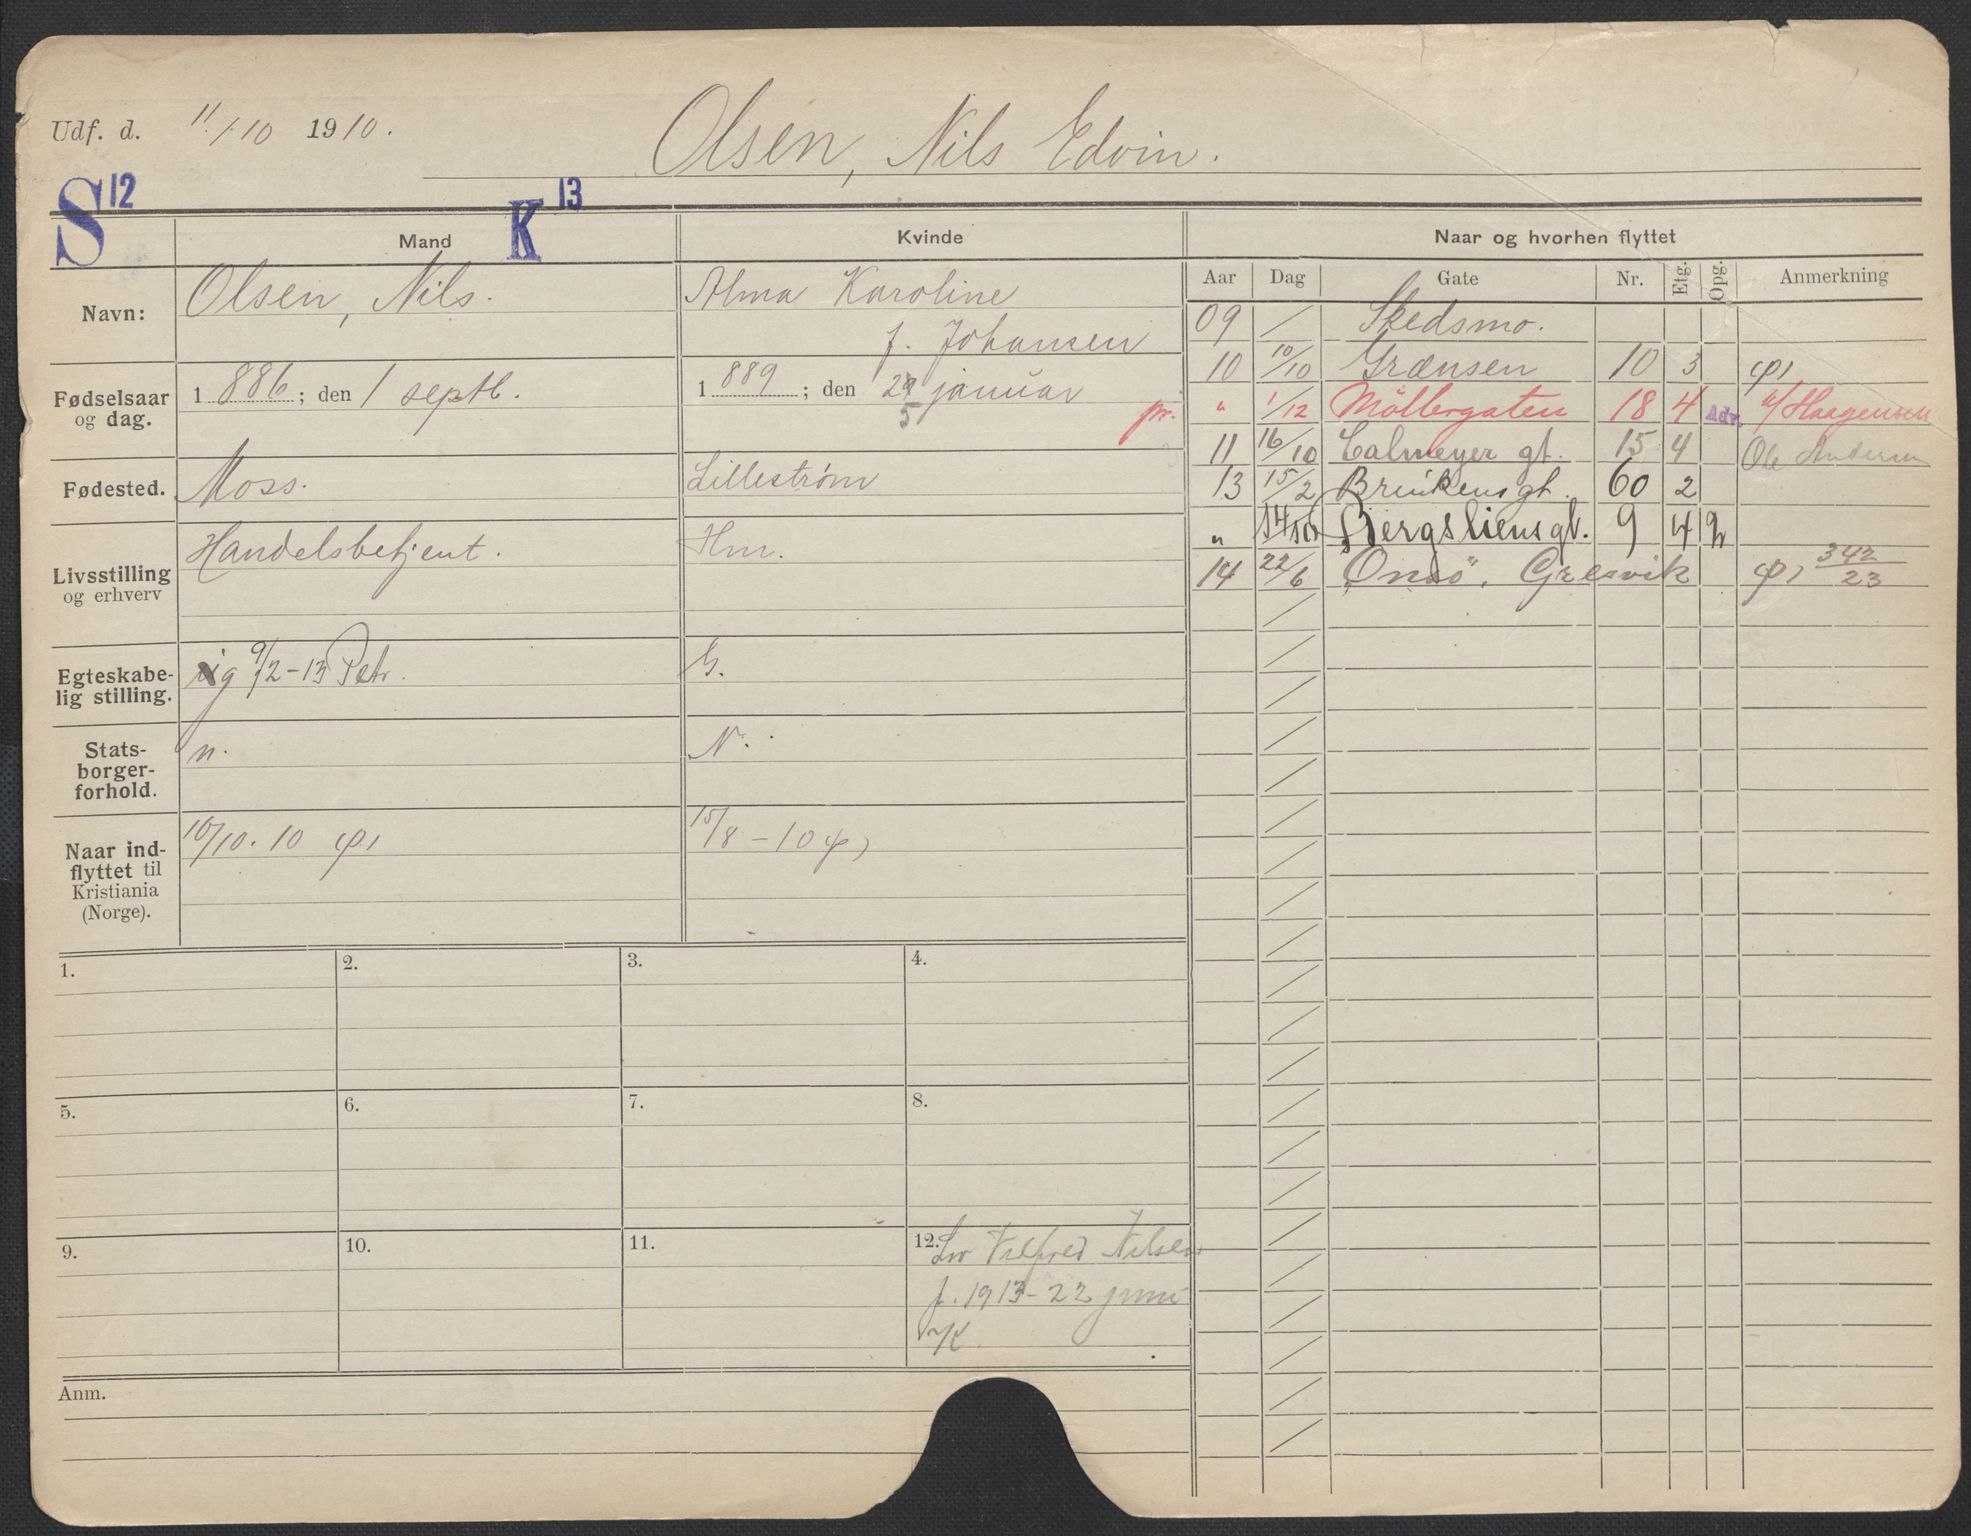 Udf. d. 11/10 1910.
Olsen, Nils Edvin.
S 12
K 13
Mand
Kvinde
Naar og hvorhen flyttet
Navn:
Olsen, Nils.
Alma Karoline
f. Johansen
Fødselsaar og dag.
1886; den 1 septb.
1889; den 29 januar
5
pr.
Fødested.
Moss.
Lillestrøm
Livsstilling og erhverv
Handelsbetjent.
Hm.
Egteskabe-
lig stilling.
g 9/2-13 Petr.
G.
Stats-
borger-
forhold.
n.
N.
Naar ind-
flyttet til
Kristiania
(Norge).
10/10. 10 φ,
15/8-10 φ,
Aar Dag Gate Nr. Etg. Opg. Anmerkning
09 / Skedsmo.
10 10/10 Grænsen 10 3 φ,
" 1/12 Möllergaten 18 4 Adr. v/ Haagensen
11 16/10 Calmeyer gt. 15 4 Ole Andersen
13 15/2 Brinkens gt. 60 2
" 14/10 Bergsliens gt. 9 4 2
14 22/6 Onsö, Gresvik φ, 342/23
1.
2.
3.
4.
5.
6.
7.
8.
9.
10.
11.
12. Vilfred Nilsen
f. 1913-22 juni
Anm.